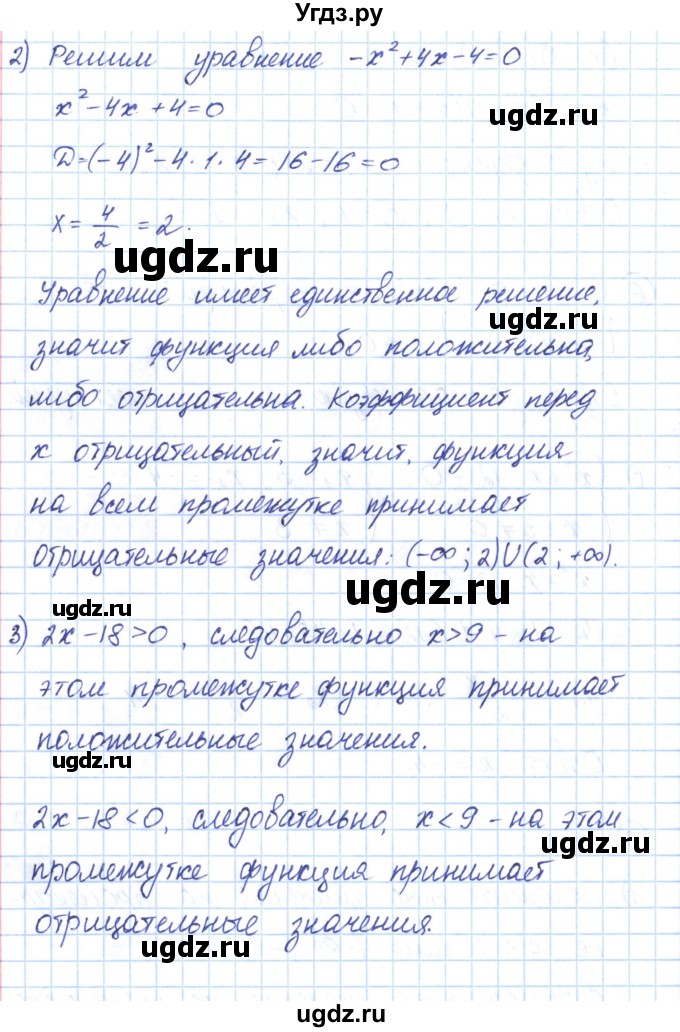 Угдз.ру
2) Решим уравнение -x²+4x-4=0
x²-4x+4=0
ugdz.ru
D=(-4)²-4·1·4=16-16=0
x=4/2=2.
ugdz.ru
Уравнение имеет единственное решение,
ugdz.ru
значит функция либо положительна,
либо отрицательна. Коэффициент перед
x отрицательный, значит, функция
на всем промежутке принимает
отрицательные значения: (-∞;2)U(2;+∞).
ugdz.ru
ugdz.ru
3) 2x-18>0, следовательно x>9 - на
этом промежутке функция принимает
положительные значения.
ugdz.ru
2x-18<0, следовательно, x<9 - на этом
ugdz.ru
промежутке функция принимает
отрицательные значения.
ugdz.ru
ugdz.ru